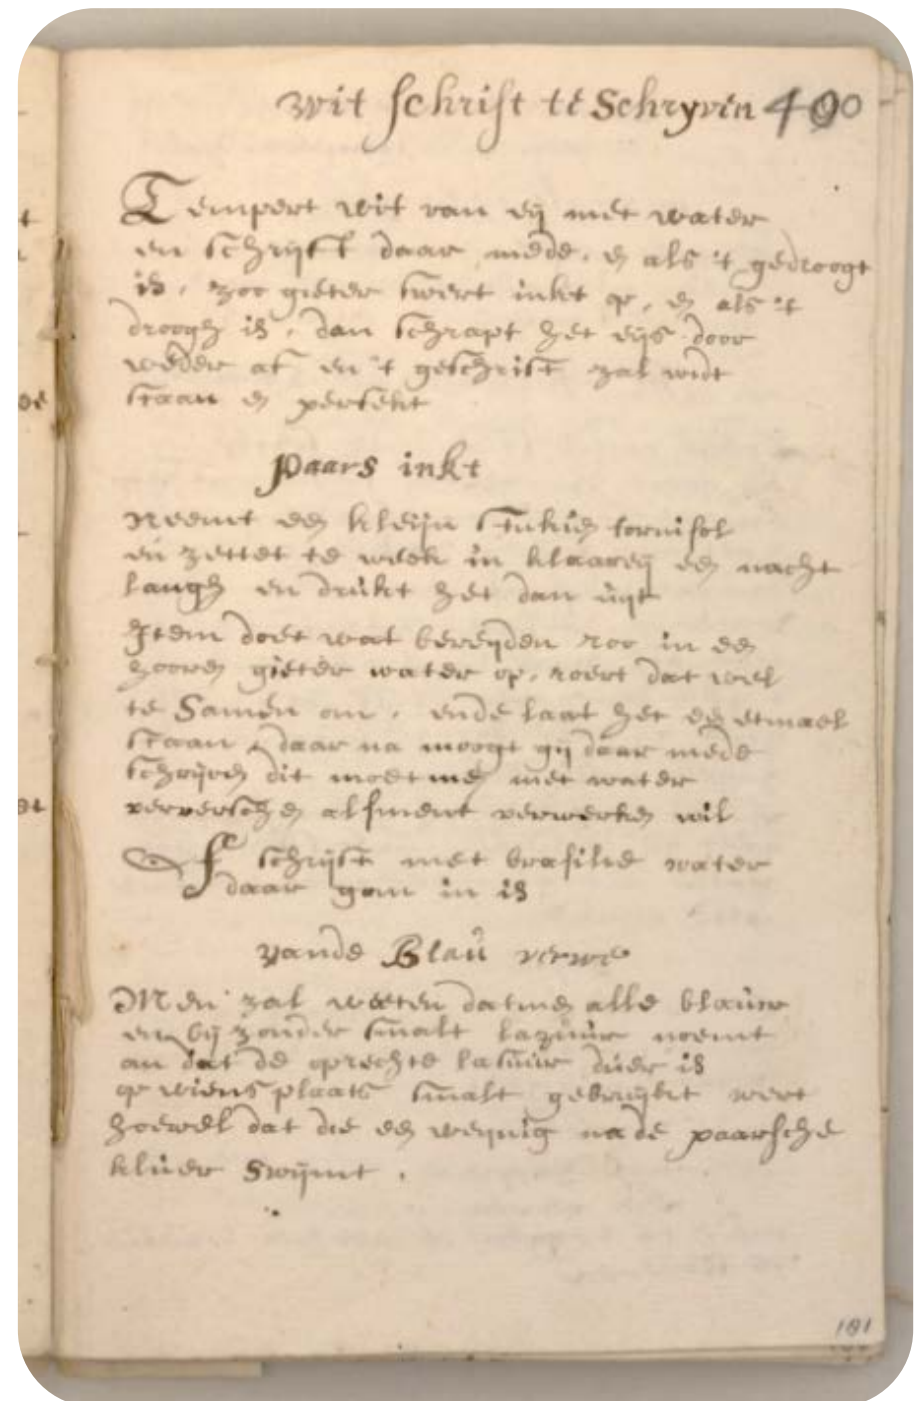 wit schrift te Schryven 490
Tempert wit van eij met water
en schrijft daar mede, en als 't gedroogt
is, zoo gieter swert inkt op, en als 't
droogh is, dan schrapt het eijs door
weder af en 't geschrift zal widt
staan en perfekt
paars inkt
Neemt een kleijn stukien tornisol
en zettet te week in klaareij een nacht
langh en drukt het dan uijt
Item doet wat bereijden roo in een
hooren gieter water op, roert dat wel
te Samen om, ende laat het een etmael
staan, daar na moogt gij daar mede
schrijven dit moet men met water
ververschen alsment verwerken wil
of schrijft met brasilie water
daar gom in is
vande Blaū verwe
Men zal weeten datmen alle blauw
en bij zonder smalt lazuur noemt
an dat de oprechte lasuur duer is
op wiens plaats smalt gebruijkt wert
hoewel dat die een weijnig na de paarsche
kluer swijmt.
t
oe
et
181